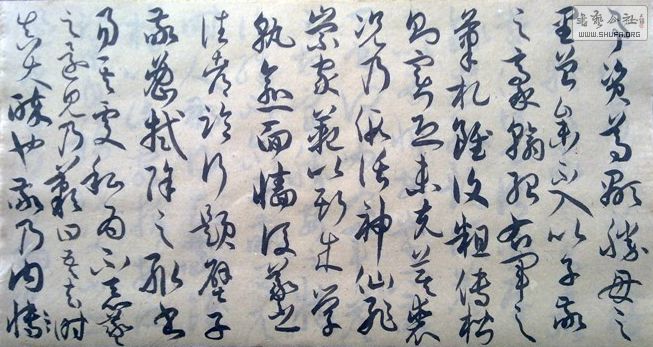 事資尊顯勝母之
里曾參不入以子敬
之豪翰紹右軍之
筆札雖復粗傳楷
則實恐未克箕裘
況乃假託神仙恥
崇家範以斯成學
孰愈面墻後羲之
往都臨行題壁子
敬密拭除之輒書
易其處私為不惡羲
之還見乃嘆曰吾去時
真大醉也敬乃內慚
書藝公社
WWW.SHUFA.ORG